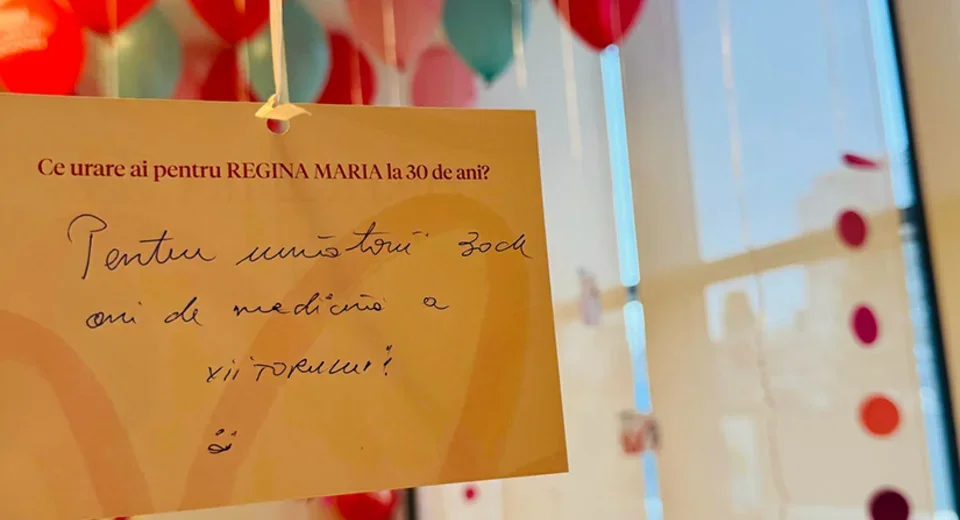 Ce urare ai pentru REGINA MARIA la 30 de ani?
Pentru următorii 30 de
ani de medicină a
viitorului!